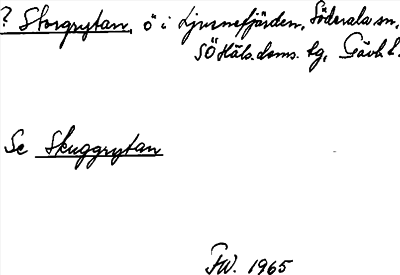 ? Storgrytan, ö i Ljusnefjärden, Söderala sn,
SÖ Häls. doms. tg, Gävl. l.
Se Skuggrytan
FW. 1965